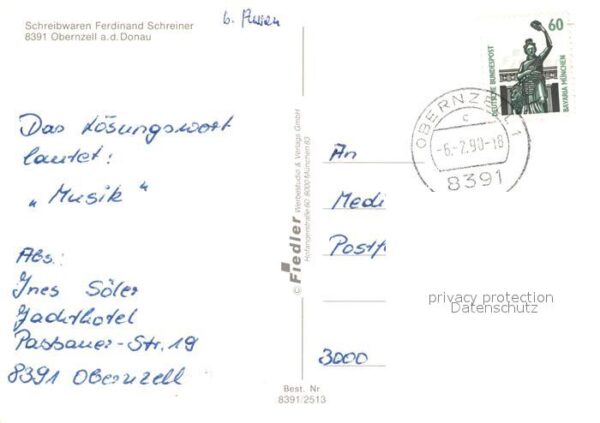 Schreibwaren Ferdinand Schreiner
8391 Obernzell a.d.Donau
Das Lösungswort
lautet:
„Musik"
Abs.:
Ines Söler
Jachthotel
Passauer-Str. 19
8391 Obernzell
© Fiedler Werbestudio & Verlags GmbH
60
DEUTSCHE BUNDESPOST
BAVARIA MÜNCHEN
OBERNZELL 1
c
-6.-2.90-18
8391
An
Medi
Postf
3000
privacy protection
Datenschutz
Best. Nr
8391/2513